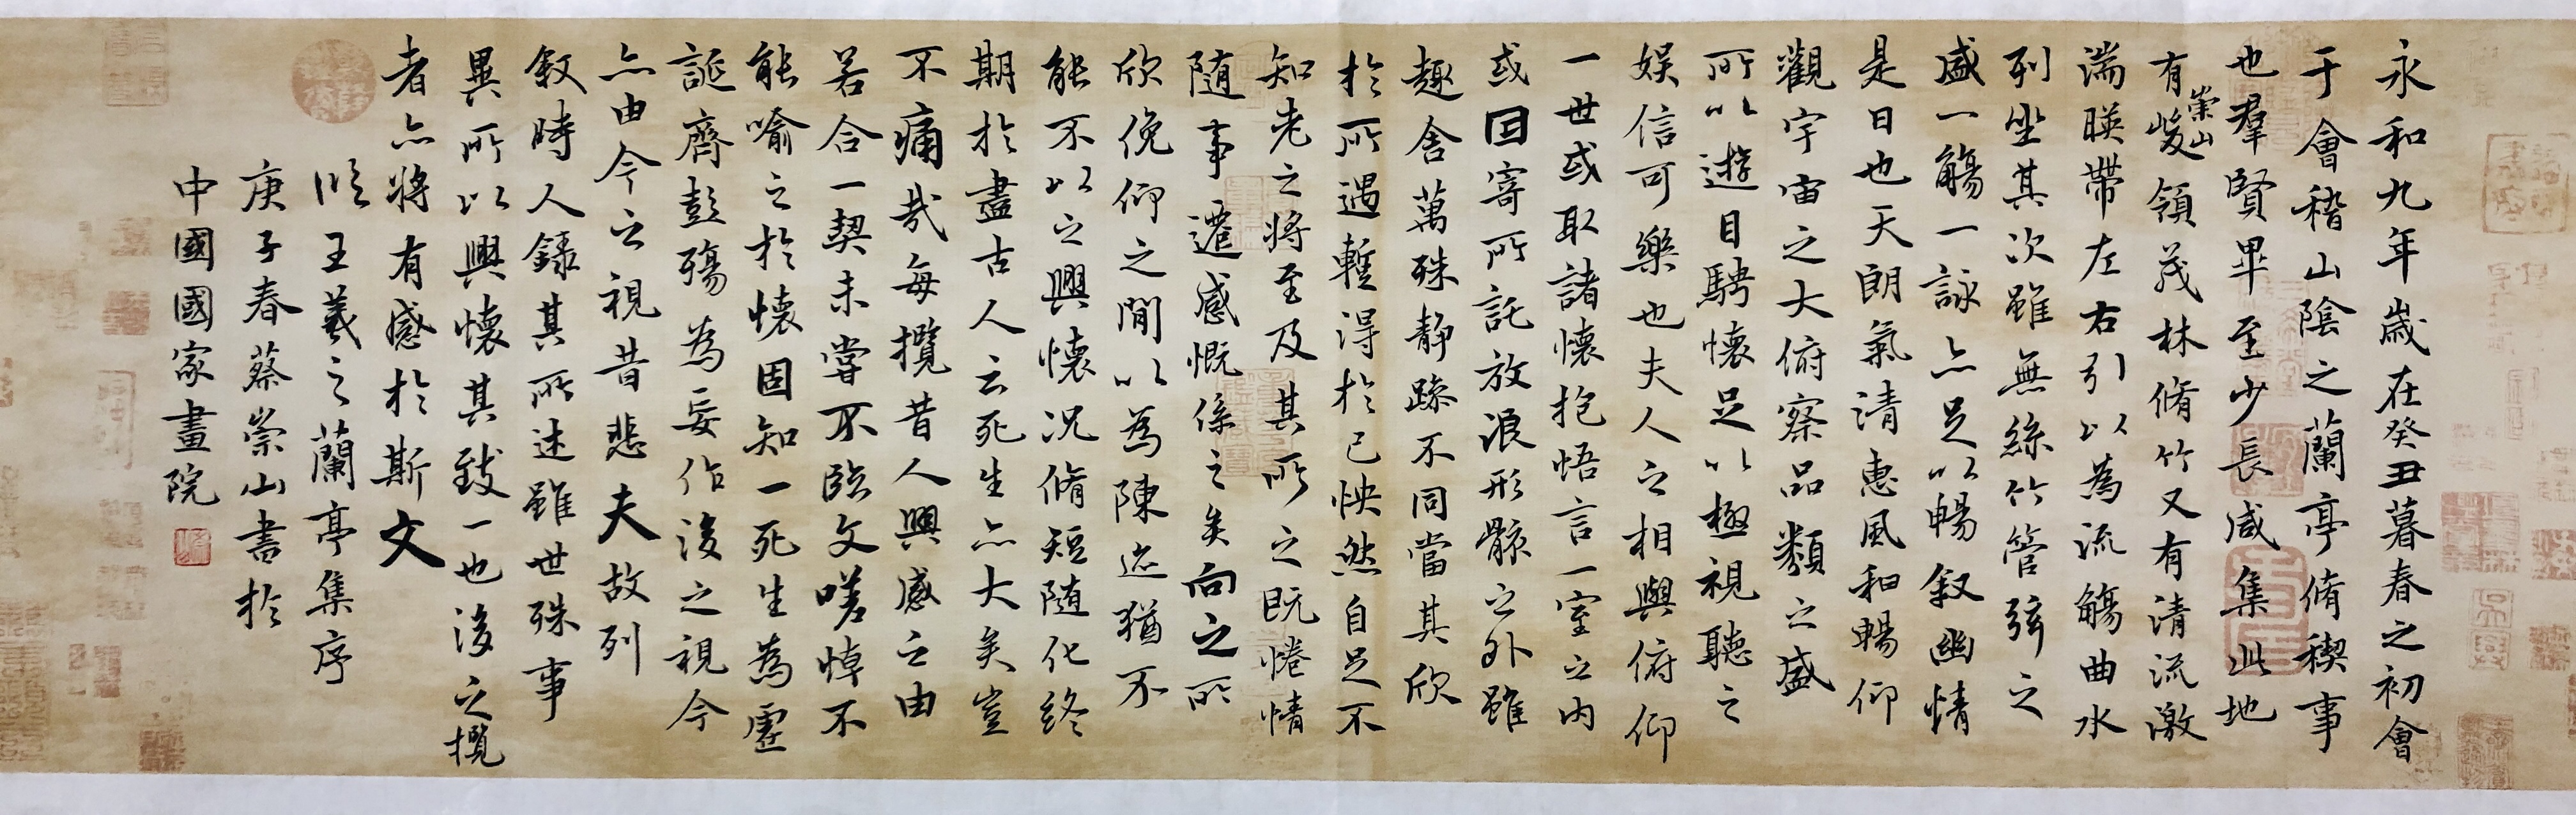 永和九年歲在癸丑暮春之初會
于會稽山陰之蘭亭脩稧事
也羣賢畢至少長咸集此地
有崇山峻領茂林脩竹又有清流激
湍暎帶左右引以為流觴曲水
列坐其次雖無絲竹管弦之
盛一觴一詠亦足以暢叙幽情
是日也天朗氣清惠風和暢仰
觀宇宙之大俯察品類之盛
所以遊目騁懷足以極視聽之
娛信可樂也夫人之相與俯仰
一世或取諸懷抱悟言一室之內
或因寄所託放浪形骸之外雖
趣舍萬殊静躁不同當其欣
於所遇蹔得於己怏然自足不
知老之將至及其所之既惓情
隨事遷感慨係之矣向之所
欣俛仰之間以為陳迹猶不
能不以之興懷況脩短隨化終
期於盡古人云死生亦大矣豈
不痛哉每攬昔人興感之由
若合一契未嘗不臨文嗟悼不
能喻之於懷固知一死生為虛
誕齊彭殤為妄作後之視今
亦由今之視昔悲夫故列
叙時人錄其所述雖世殊事
異所以興懷其致一也後之攬
者亦將有感於斯文
臨王羲之蘭亭集序
庚子春蔡崇山書於
中國國家畫院